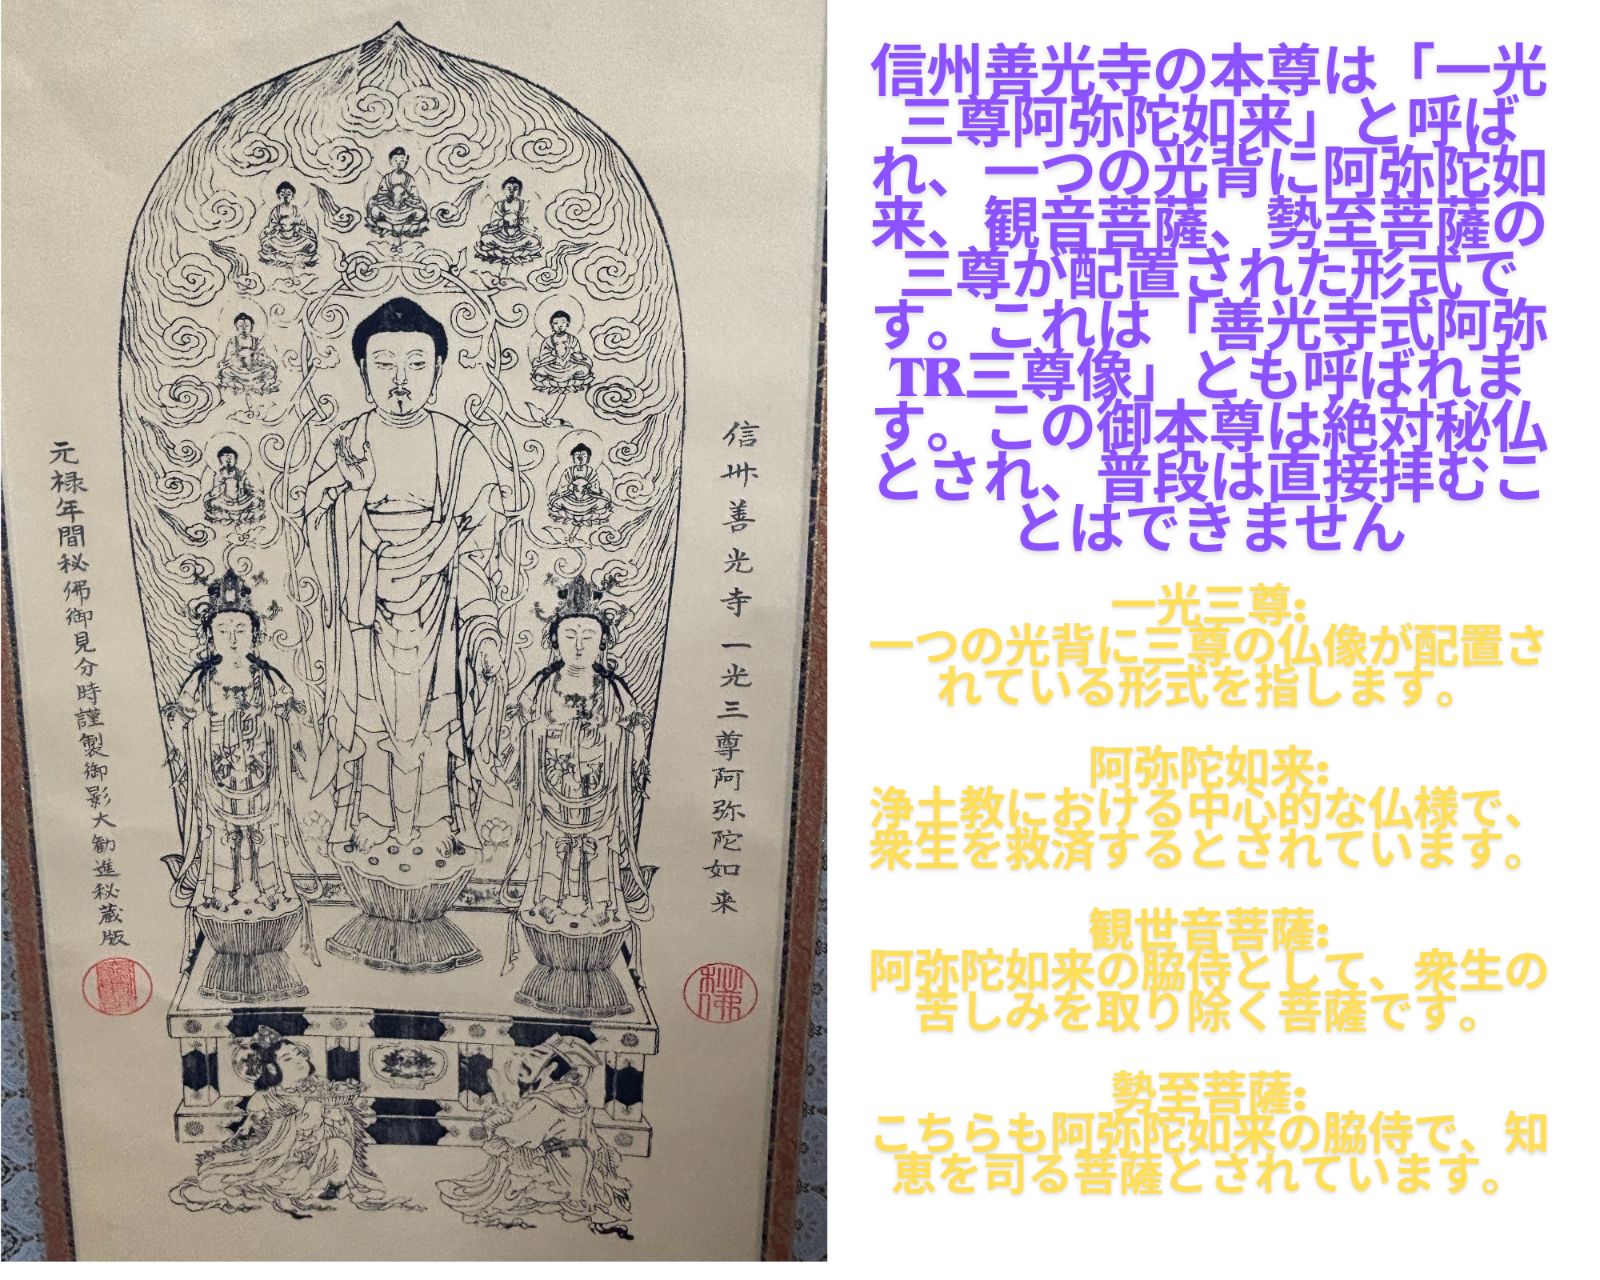 信州善光寺一光三尊阿弥陀如来
元禄年間秘佛御見分時謹製御影大勧進秘蔵版
信州善光寺の本尊は「一光
三尊阿弥陀如来」と呼ば
れ、一つの光背に阿弥陀如
来、観音菩薩、勢至菩薩の
三尊が配置された形式で
す。これは「善光寺式阿弥
TR三尊像」とも呼ばれま
す。この御本尊は絶対秘仏
とされ、普段は直接拝むこ
とはできません
一光三尊:
一つの光背に三尊の仏像が配置さ
れている形式を指します。
阿弥陀如来:
浄土教における中心的な仏様で、
衆生を救済するとされています。
観世音菩薩:
阿弥陀如来の脇侍として、衆生の
苦しみを取り除く菩薩です。
勢至菩薩:
こちらも阿弥陀如来の脇侍で、知
恵を司る菩薩とされています。